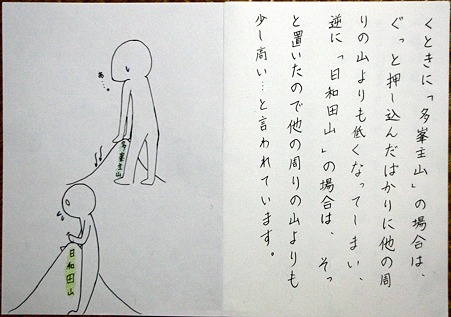 くときに「多峯主山」の場合は、
ぐっと押し込んだばかりに他の周
りの山よりも低くなってしまい、
逆に「日和田山」の場合は、そっ
と置いたので他の周りの山よりも
少し高い…と言われています。
あ…
多峯主山
日和田山